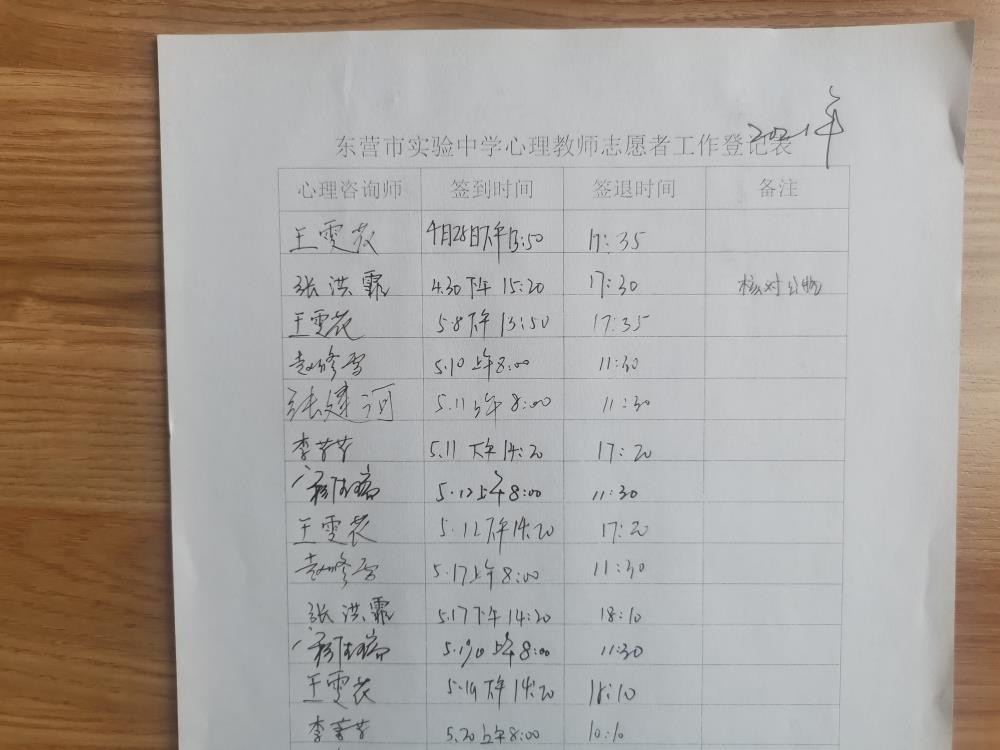 2021年
东营市实验中学心理教师志愿者工作登记表
心理咨询师 签到时间 签退时间 备注
王雯花 4月28日下午13:50 17:35
张洪霏 4.30下午 15:20 17:30 核对
王雯花 5.8下午 13:50 17:35
赵修雪 5.10上午8:00 11:30
张建河 5.11上午 8:00 11:30
李芳芳 5.11 下午14:20 17:20
5.12上午8:00 11:30
王雯花 5.12下午14:20 17:20
赵修雪 5.17上午8:00 11:30
张洪霏 5.17下午14:20 18:10
上午8:00 11:30
王雯花 5.19下午14:20 18:10
李芳芳 5.20上午8:00 10:10